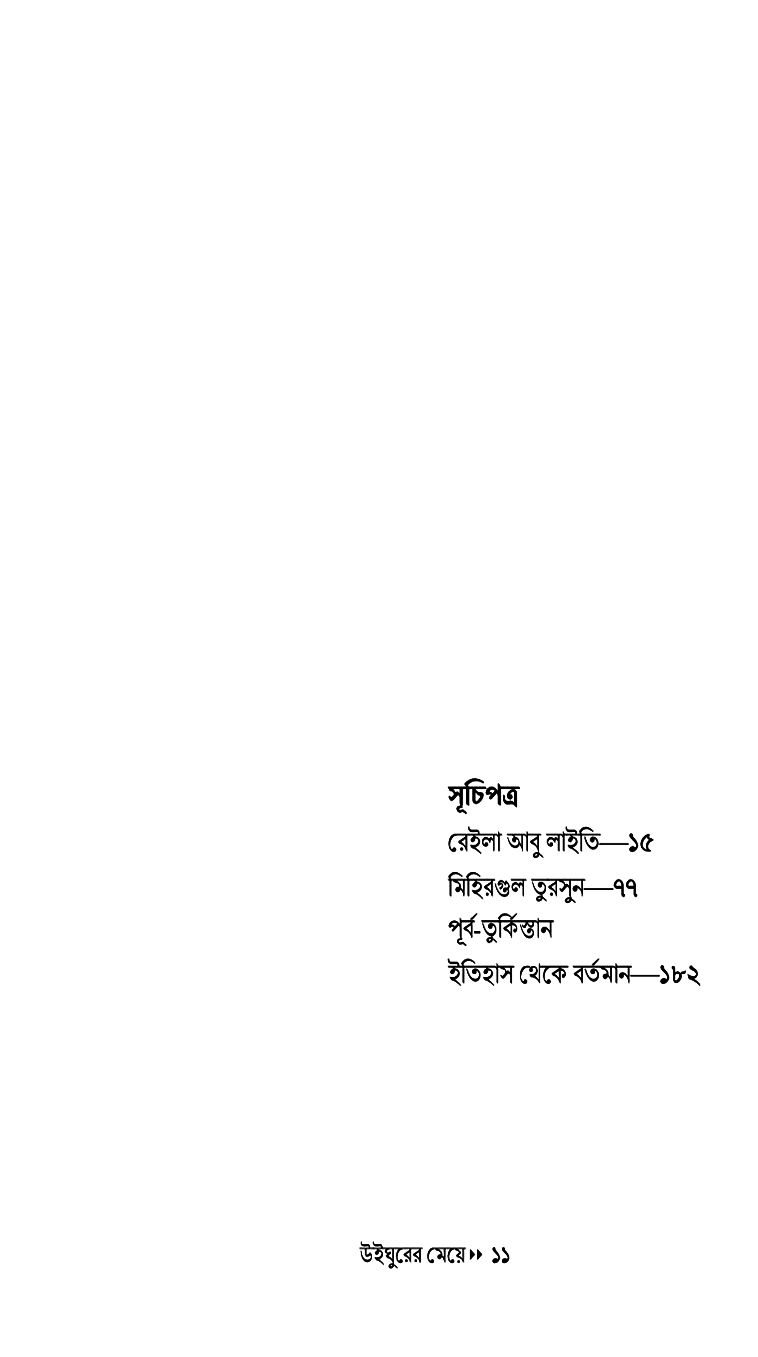 সূচিপত্র
রেইলা আবু লাইতি—১৫
মিহিরগুল তুরসুন—৭৭
পূর্ব-তুর্কিস্তান
ইতিহাস থেকে বর্তমান—১৮২
উইঘুরের মেয়ে ১১